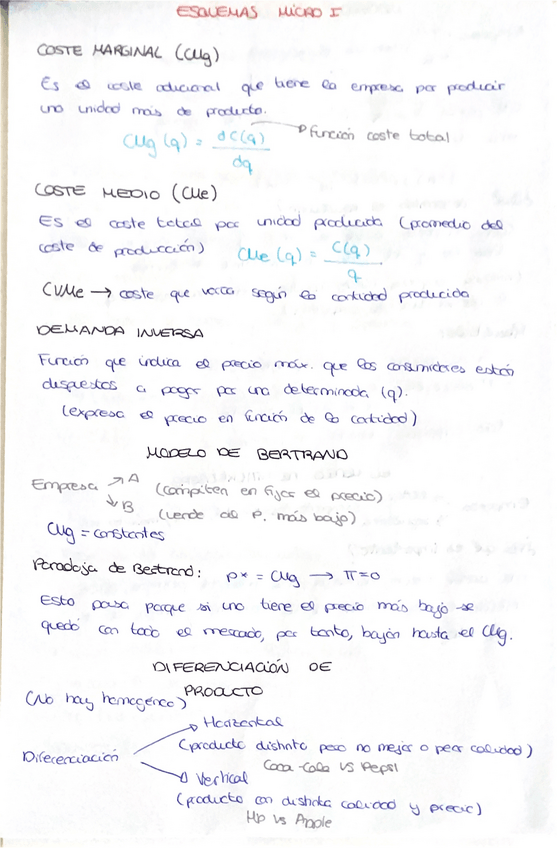 ESQUEMAS MICRO I
COSTE MARGINAL (CMg)
Es el coste adicional que tiene la empresa por producir
una unidad más de producto.
CMg (q) = dC(q) / dq → Función coste total
COSTE MEDIO (CMe)
Es el coste total por unidad producida (promedio del
coste de producción) CMe (q) = C(q) / q
CVMe → coste que varía según la cantidad producida
DEMANDA INVERSA
Función que indica el precio máx. que los consumidores están
dispuestos a pagar por una determinada (q).
(expresa el precio en función de la cantidad)
MODELO DE BERTRAND
Empresa ↗ A (compiten en fijar el precio)
↘ B (vende al P. más bajo)
CMg = constantes
Paradoja de Bertrand: p* = CMg → π=0
Esto pasa porque si uno tiene el precio más bajo se
quedó con todo el mercado, por tanto, bajan hasta el CMg.
DIFERENCIACIÓN DE
PRODUCTO
(No hay homogéneo)
Horizontal
(producto distinto pero no mejor o peor calidad)
Diferenciación
Coca-Cola VS Pepsi
Vertical
(producto con distinta calidad y precio)
Hp vs Apple